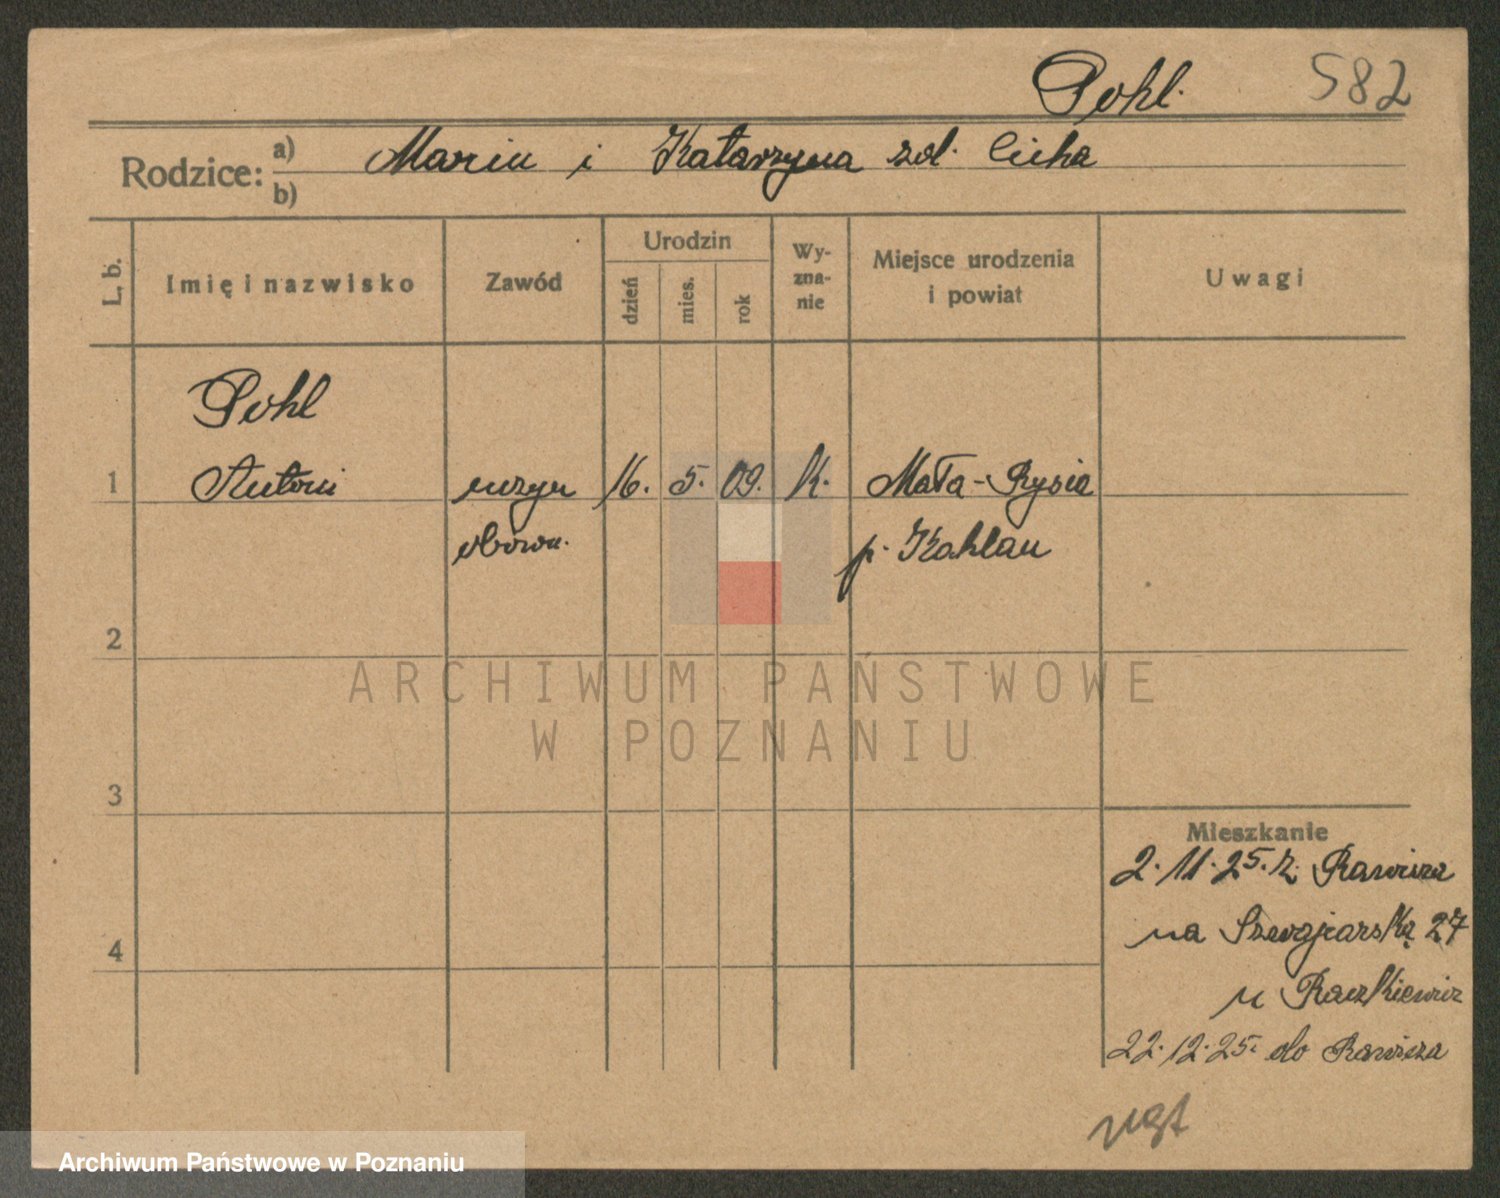 Pohl. 582
Rodzice: a) Marcin i Katarzyna zd. Cicha
b)
L. b. Imię i nazwisko Zawód Urodzin dzień mies. rok Wyznanie Miejsce urodzenia i powiat Uwagi
Pohl
1 Antoni 16. 5. 09. k. Mała-Rysia
p.
2
ARCHIWUM PAŃSTWOWE
W POZNANIU
3
Mieszkanie
2.11.25. z Rawicza
na Szwajcarską 27
4
u Raczkiewicz
22.12.25. do Rawicza
Archiwum Państwowe w Poznaniu